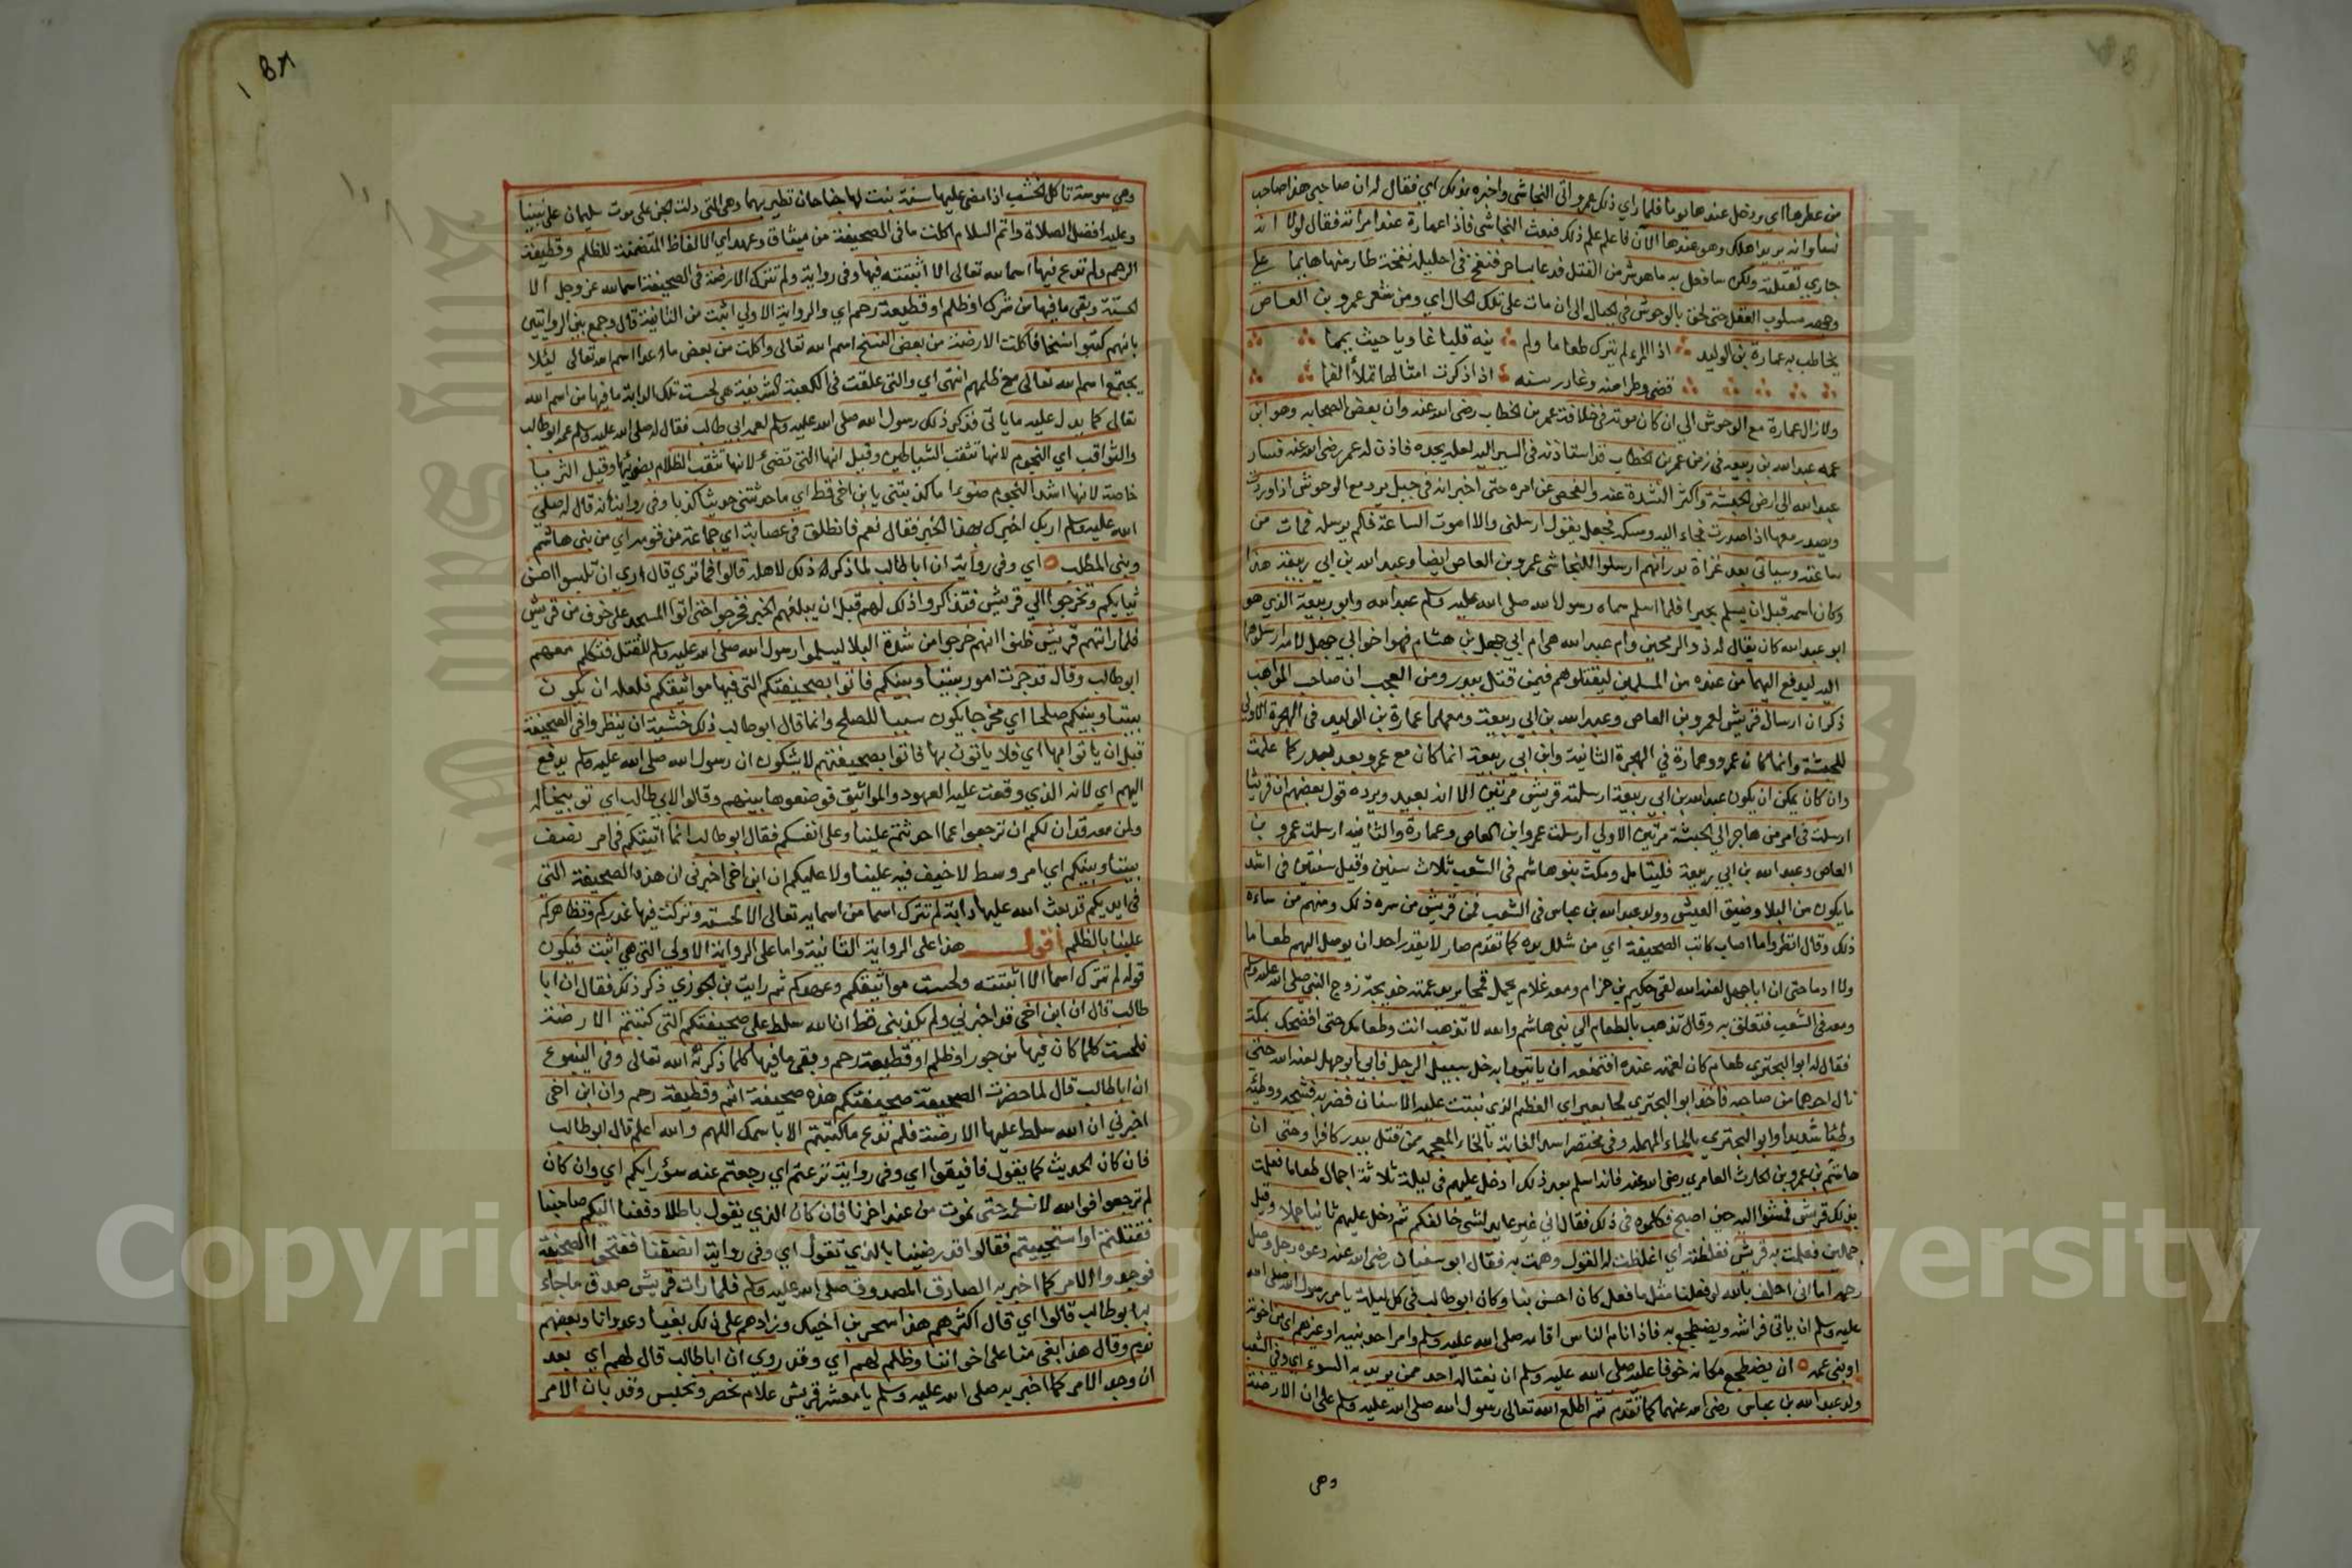 من عطرها اي ودخل عندها يوما فلما راي ذلك عمرو اتى النجاشي واخبره بذلك اي فقال له ان صاحبي هذا صاحب
نسا وانه يريد اهلك وهو عندها الآن فاعلم علم ذلك فبعث النجاشي فاذا عمارة عند امراته فقال لولا انه
جاري لقتلته ولكن سافعل به ما هو شر من القتل فدعا بساحر فنفخ في احليله نفخة طار منها هايما على
وجهه مسلوب العقل حتى لحق بالوحوش في الجبال الى ان مات على تلك الحال اي ومن شعر عمرو بن العاص
يخاطب به عمارة بن الوليد اذا المرء لم يترك طعاما ولم ينه قلبا غاويا حيث يمما
قضى وطرا منه وغادر سنه اذا ذكرت امثالها تملأ الفما
ولا زال عمارة مع الوحوش الى ان كان موته في خلافة عمر بن الخطاب رضي الله عنه وان بعض الصحابه وهو ابن
عمه عبد الله بن ربيعه في زمن عمر بن الخطاب قد استاذنه في السير اليه لعله يجده فاذن له عمر رضي الله عنه فسار
عبد الله الى ارض الحبشة واكثر النشدة عنه والفحص عن امره حتى اخبر انه في جبل يرد مع الوحوش اذا وردت
ويصدر معها اذا صدرت فجاء اليه ومسكه فجعل يقول ارسلني والا اموت الساعة فلم يرسله فمات من
ساعته وسياتي بعد غزاة بدر انهم ارسلوا للنجاشي عمرو بن العاص ايضا وعبد الله بن ابي ربيعة هذا
وكان اسمه قبل ان يسلم بحيرا فلما اسلم سماه رسول الله صلى الله عليه وسلم عبد الله وابو ربيعة الذي هو
ابو عبد الله كان يقال له ذو الرمحين وام عبد الله هي ام ابي جهل بن هشام فهو اخو ابي جهل لامه ارسلوهما
اليه ليدفع اليهما من عنده من المسلمين ليقتلوهم فيمن قتل ببدر ومن العجب ان صاحب المواهب
ذكر ان ارسال قريش لعمرو بن العاص وعبد الله بن ابي ربيعة ومعهما عمارة بن الوليد في الهجرة الاولى
للحبشة وانما كان عمرو وعمارة في الهجرة الثانية وابن ابي ربيعة انما كان مع عمرو بعد بدر كما علمت
وان كان يمكن ان يكون عبد الله بن ابي ربيعة ارسلته قريش مرتين الا انه بعيد ويرده قول بعضهم ان قريشا
ارسلت في امر من هاجر الى الحبشة مرتين الاولى ارسلت عمرو ابن العاص وعمارة والثانية ارسلت عمرو بن
العاص وعبد الله بن ابي ربيعة فليتامل ومكث بنو هاشم في الشعب ثلاث سنين وقيل سنتين في اشد
ما يكون من البلا وضيق العيش وولد عبد الله بن عباس في الشعب فمن قريش من سره ذلك ومنهم من ساءه
ذلك وقال انظروا ما اصاب كاتب الصحيفة اي من شلل يده كما تقدم صار لا يقدر احد ان يوصل اليهم طعاما
ولا ادما حتى ان ابا جهل لعنه الله لقي حكيم بن حزام ومعه غلام يحمل قمحا يريد عمته خديجة زوج النبي صلى الله عليه وسلم
ومعه في الشعب فتعلق به وقال تذهب بالطعام الى بني هاشم والله لا تذهب انت وطعامك حتى افضحك بمكة
فقال له ابو البحتري طعام كان لعمته عنده افتمنعه ان ياتيها به خل سبيل الرجل فابى ابو جهل لعنه الله حتى
نال احدهما من صاحبه فاخذ ابو البحتري لحا بعير اي العظم الذي تنبت عليه الاسنان فضربه فشجه ووطئه
وطئا شديدا وابو البحتري بالحاء المهملة وفي مختصر اسد الغابة بالخا المعجمه ممن قتل ببدر كافرا وحتى ان
هاشم بن عمرو بن الحارث العامري رضي الله عنه فانه اسلم بعد ذلك ادخل عليهم في ليلة ثلاثة اجمال طعاما فعلمت
بذلك قريش فمشوا اليه حين اصبح فكلموه في ذلك فقال اني غير عايد لشي خالفكم ثم دخل عليهم ثانيا حملا وقيل
حملين فعلمت به قريش فغالظته اي اغلظت له القول وهمت به فقال ابو سفيان رضي الله عنه دعوه رجل وصل
رحمه اما اني احلف بالله لو فعلنا مثل ما فعل كان احسن بنا وكان ابو طالب في كل ليلة يامر رسول الله صلى الله
عليه وسلم ان ياتي فراشه ويضطجع به فاذا نام الناس اقامه صلى الله عليه وسلم وامر احد بنيه او غيرهم اي من اخوته
او بني عمه ان يضطجع مكانه خوفا عليه صلى الله عليه وسلم ان يغتاله احد ممن يريد به السوء اي وفي الشعب
ولد عبد الله بن عباس رضي الله عنهما كما تقدم ثم اطلع الله تعالى رسول الله صلى الله عليه وسلم على ان الارضة
وهي
وهي سوسة تاكل الخشب اذا مضى عليها سنة نبت لها جناحان تطير بهما وهي التي دلت الجن على موت سليمان على نبينا
وعليه افضل الصلاة واتم السلام اكلت ما في الصحيفة من ميثاق وعهد اي الالفاظ المتضمنة للظلم وقطيعة
الرحم ولم تدع فيها اسما لله تعالى الا اثبتته فيها وفي رواية ولم تترك الارضة في الصحيفة اسما لله عز وجل الا
لحسته وبقي ما فيها من شرك او ظلم او قطيعة رحم اي والرواية الاولى اثبت من الثانية قال وجمع بين الروايتين
بانهم كتبوا نسخا فاكلت الارضة من بعض النسخ اسم الله تعالى واكلت من بعض ما عدا اسم الله تعالى ليلا
يجتمع اسم الله تعالى مع ظلمهم انتهى اي والتي علقت في الكعبة الشريفة هي لحست تلك الدابة ما فيها من اسم الله
تعالى كما يدل عليه ما ياتي فذكر ذلك رسول الله صلى الله عليه وسلم لعمه ابي طالب فقال له صلى الله عليه وسلم عمه ابو طالب
والثواقب اي النجوم لانها تثقب الشياطين وقيل انها التي تضيء لانها تثقب الظلام بضوئها وقيل الثريا
خاصة لانها اشد النجوم ضوءا ما كذبتني يا بن اخي قط اي ما حدثتني حديثا كذبا وفي رواية انه قال له صلى
الله عليه وسلم اربك اخبرك بهذا الخبر فقال نعم فانطلق في عصابة اي جماعة من قومه اي من بني هاشم
وبني المطلب اي وفي رواية ان ابا طالب لما ذكر له ذلك لاهله قالوا فما تري قال اري ان تلبسوا احسن
ثيابكم وتخرجوا الى قريش فتذاكروا ذلك لهم قبل ان يبلغهم الخبر فخرجوا حتى اتوا المسجد على خوف من قريش
فلما راتهم قريش ظنوا انهم خرجوا من شدة البلا ليسلموا رسول الله صلى الله عليه وسلم للقتل فتكلم معهم
ابو طالب وقال قد جرت امور بيننا وبينكم فاتوا بصحيفتكم التي فيها مواثيقكم فلعله ان يكون
بيننا وبينكم صلحا اي مخرجا يكون سببا للصلح وانما قال ابو طالب ذلك خشية ان ينظروا في الصحيفة
قبل ان ياتوا بها اي فلا ياتون بها فاتوا بصحيفتهم لا يشكون ان رسول الله صلى الله عليه وسلم يدفع
اليهم اي لانه الذي وقعت عليه العهود والمواثيق فوضعوها بينهم وقالوا لابي طالب اي توبيخا له
ولمن معه قد ان لكم ان ترجعوا عما احدثتم علينا وعلى انفسكم فقال ابو طالب انما اتيتكم في امر نصف
بيننا وبينكم اي امر وسط لا حيف فيه علينا ولا عليكم ان ابن اخي اخبرني ان هذه الصحيفة التي
في ايديكم قد بعث الله عليها دابة لم تترك اسما من اسمايه تعالى الا لحسته وتركت فيها غدركم وتظاهركم
علينا بالظلم اقول هذا على الرواية الثانية واما على الرواية الاولى التي هي اثبت فيكون
قوله لم تترك اسما الا اثبتته ولحست مواثيقكم وعهدكم ثم رايت بن الجوزي ذكر ذلك فقال ان ابا
طالب قال ان ابن اخي قد اخبرني ولم يكذبني قط ان الله سلط على صحيفتكم التي كتبتم الارضة
فلحست كلما كان فيها من جور او ظلم او قطيعة رحم وبقي ما فيها كلما ذكر به الله تعالى وفي الينبوع
ان ابا طالب قال لما حضرت الصحيفة صحيفتكم هذه صحيفة اثم وقطيعة رحم وان ابن اخي
اخبرني ان الله سلط عليها الارضة فلم تدع ما كتبتم الا باسمك اللهم والله اعلم قال ابو طالب
فان كان الحديث كما يقول فافيقوا اي وفي رواية نزعتم اي رجعتم عنه سؤ رايكم اي وان كان
لم ترجعوا فوالله لا نسلمه حتى نموت من عند اخرنا فان كان الذي يقول باطلا دفعنا اليكم صاحبنا
فقتلتم او استحييتم فقالوا قد رضينا بالذي تقول اي وفي رواية انصفتنا ففتحوا الصحيفة
فوجدوا الامر كما اخبر به الصادق المصدوق صلى الله عليه وسلم فلما رات قريش صدق ما جاء
به ابو طالب قالوا اي قال اكثرهم هذا سحر بن اخيك وزادهم على ذلك بغيا وعدوانا وبعضهم
ندم وقال هذا بغي منا على اخواننا وظلم لهم اي وقد روي ان ابا طالب قال لهم اي بعد
ان وجد الامر كما اخبر به صلى الله عليه وسلم يا معشر قريش علام نحصر ونحبس وقد بان الامر
Copyright © King Saud University